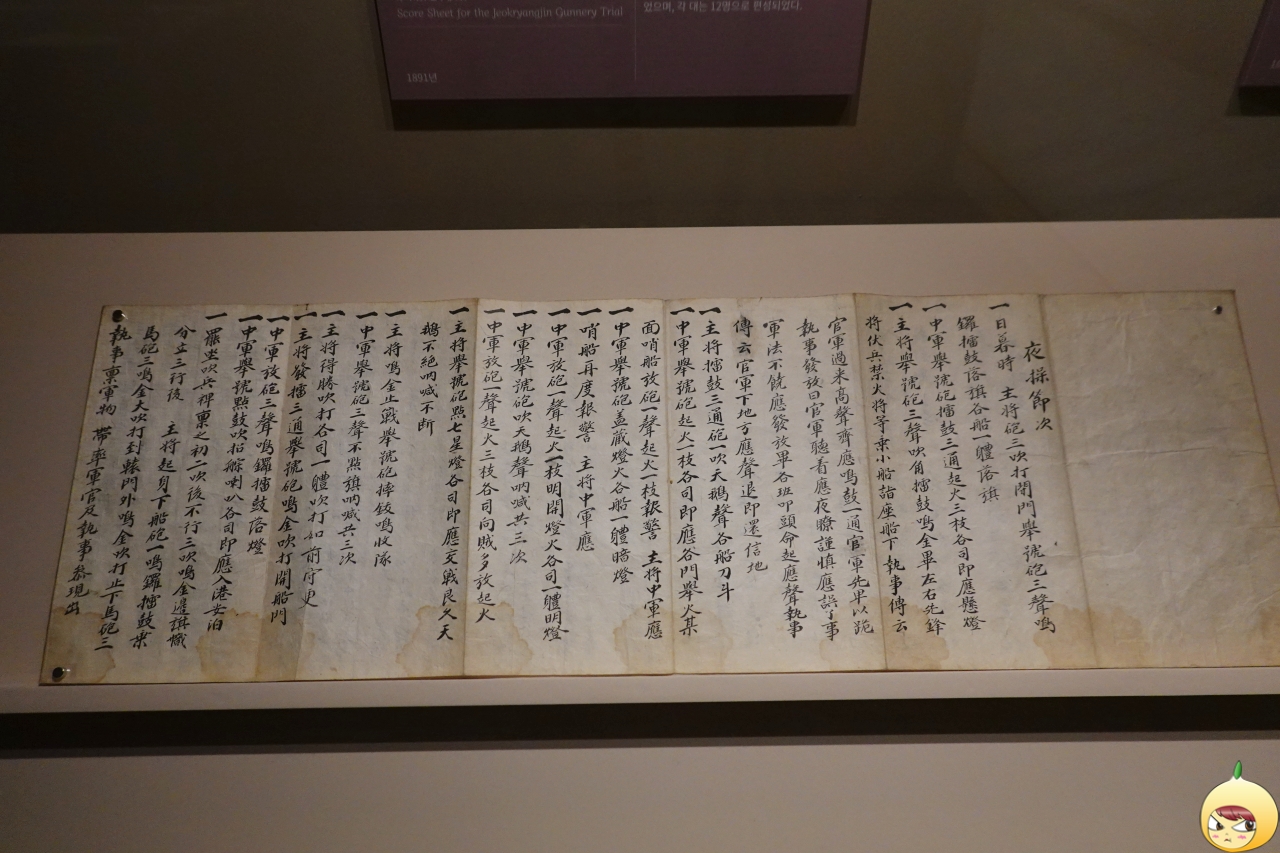 Score Sheet for the Jeokryangjin Gunnery Trial
1891년
었으며, 각 대는 12명으로 편성되었다.
夜操節次
一日暮時 主將砲三次吹打閉門擧號砲三聲鳴
鑼擂鼓落旗各船一體落旗
一中軍擧號砲擂鼓三通起火三枝各司卽應懸燈
一主將擧號砲三聲吹角擂鼓鳴金畢左右先鋒
將伏兵禁火將等乘小船詣座船下 執事傳云
官軍過來高聲齊應鳴鼓一通官軍先單以跪
執事發放曰官軍聽着應夜瞭謹愼應誤了事
軍法不饒應發放畢各班叩頭命起應聲執事
傳云官軍下地方應聲退卽還信地
一主將擂鼓三通砲一吹天鵝聲各船刀斗
一中軍擧號砲起火一枝各司卽應各門擧火某
面哨船放砲一聲起火一枝報警 主將中軍應
一中軍擧號砲盖藏燈火各船一體暗燈
一哨船再度報警 主將中軍應
一中軍放砲一聲起火一枝明開燈火各司一體明燈
一中軍擧號砲吹天鵝聲吶喊共三次
一中軍放砲一聲起火三枝各司向賊多放起火
一主將擧號砲點七星燈各司卽應交戰良久天
鵝不絶吶喊不斷
一主將鳴金止戰擧號砲摔鈸鳴收隊
一中軍擧號砲三聲不點旗吶喊共三次
一主將得勝吹打各司一體吹打如前守更
一主將發擂三通擧號砲鳴金吹打開船門
一中軍放砲三聲鳴鑼擂鼓落燈
一中軍擧號點鼓吹招䑸喇叭各司卽應入港安泊
一罷坐吹兵裨稟之初二次後不行三次鳴金邊旗幟
分立三行後 主將起身下船砲一鳴鑼擂鼓樂
馬砲三鳴金大吹打到轅門外鳴金吹打止下馬砲三
執事稟軍物 帶率軍官及執事恭現出